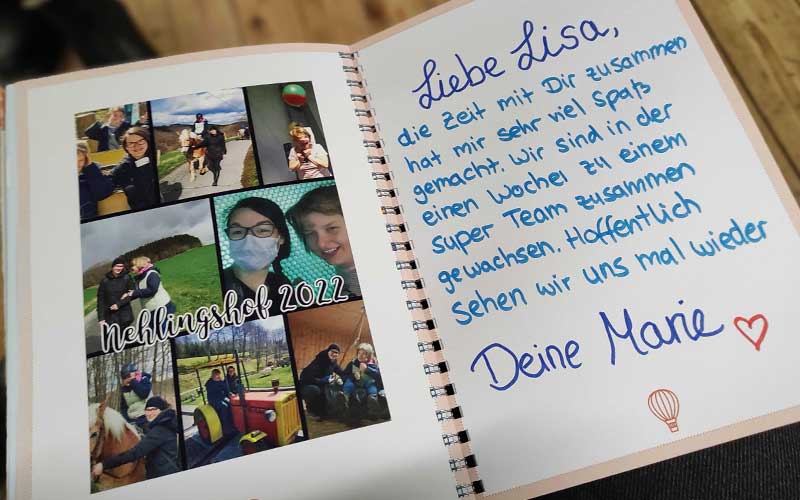 Nehlingshof 2022
Liebe Lisa,
die Zeit mit Dir zusammen
hat mir sehr viel Spaß
gemacht. Wir sind in der
einen Woche zu einem
super Team zusammen
gewachsen. Hoffentlich
sehen wir uns mal wieder
Deine Marie